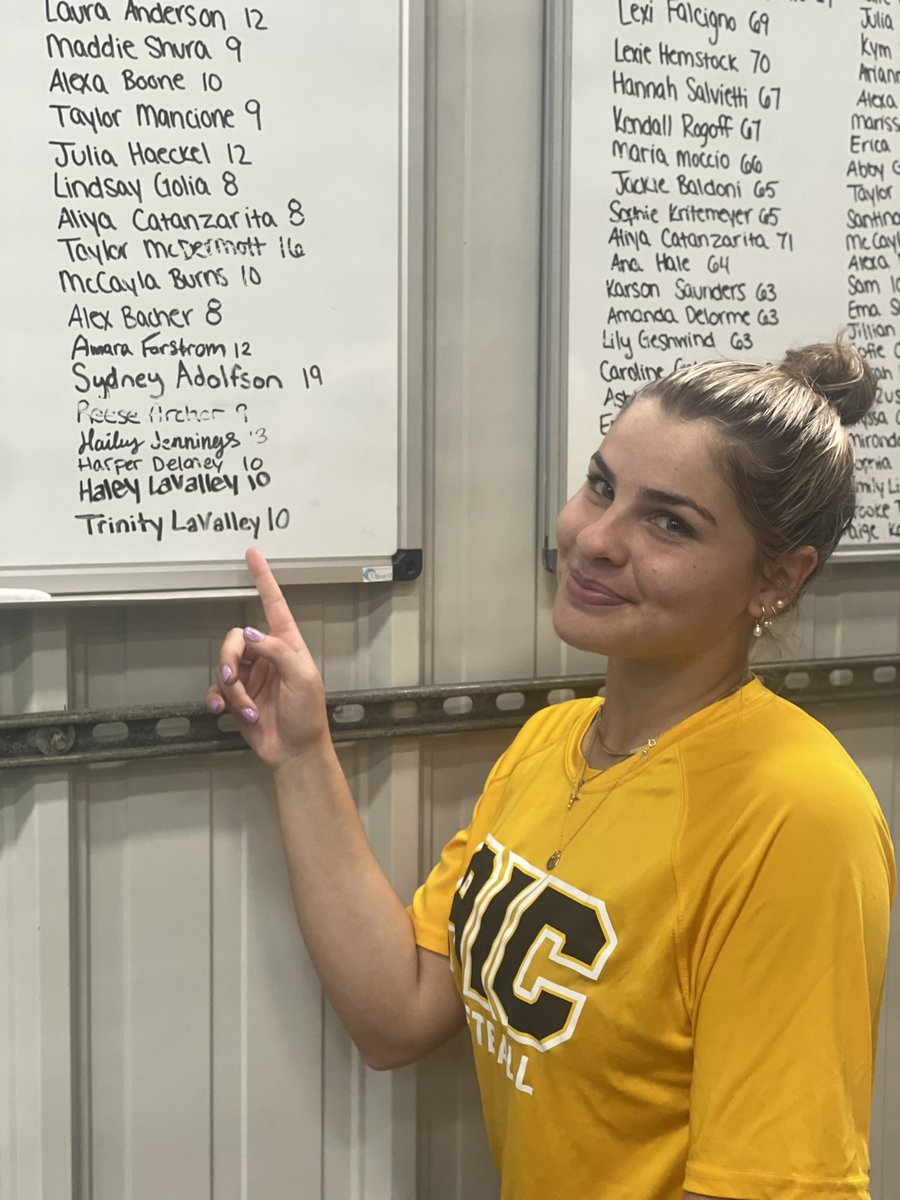 Laura Anderson 12
Maddie Shura 9
Alexa Boone 10
Taylor Mancione 9
Julia Haeckel 12
Lindsay Golia 8
Aliya Catanzarita 8
Taylor McDermott 16
McCayla Burns 10
Alex Bacher 8
Amara Forstrom 12
Sydney Adolfson 19
Reese Archer 9
Hailey Jennings 13
Harper Deloney 10
Haley LaValley 10
Trinity LaValley 10
Lexi Falcigno 69
Lexie Hemstock 70
Hannah Salvietti 67
Kendall Rogoff 67
Maria Moccio 66
Jackie Baldoni 65
Sophie Kritemeyer 65
Aliya Catanzarita 71
Ana Hale 64
Karson Saunders 63
Amanda Delorme 63
Lily Geshwind 63
Caroline
Julia
Kym
Ariann
Alexa
Mariss
Erica
Abby G
Taylor
Santino
McCayl
Alexa
Sam
Ema S
Jillian
AIC